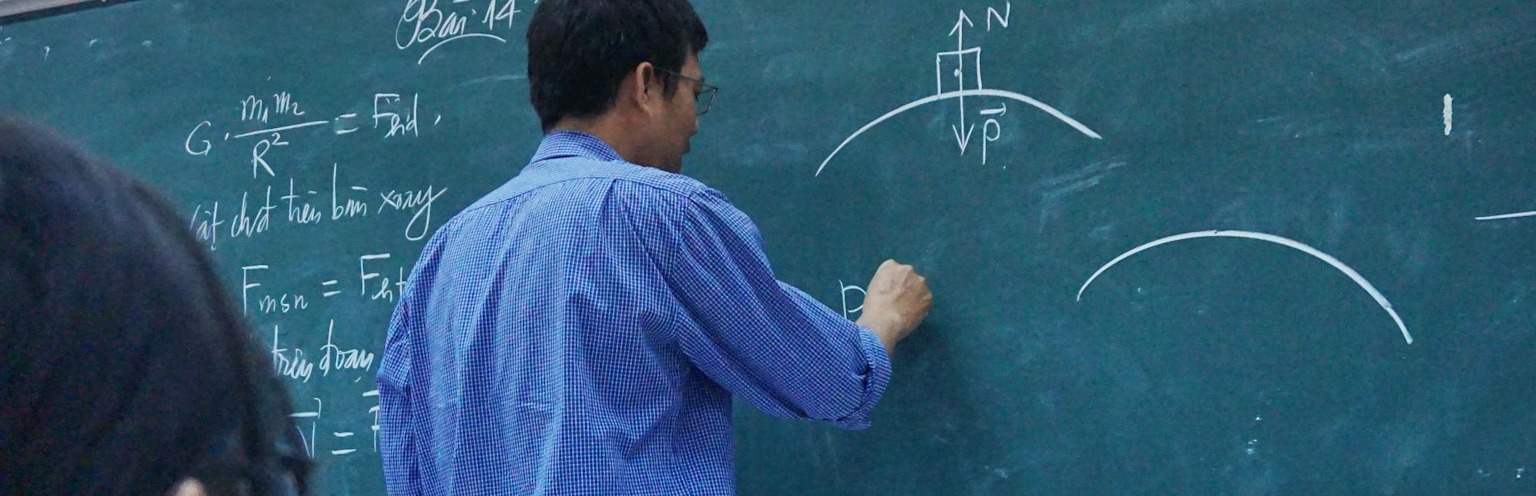 Bài 14
G. m₁m₂ / R² = Fhd.
vật chđ trên bàn xoay
Fmsn = Fht
trên đoạn
N =
N
P
P